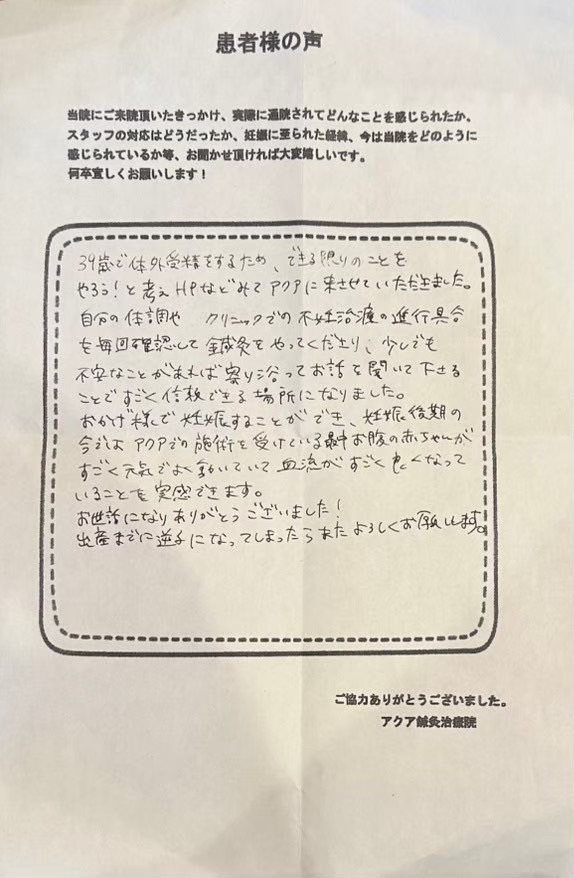 患者様の声
当院にご来院頂いたきっかけ、実際に通院されてどんなことを感じられたか、
スタッフの対応はどうだったか、妊娠に至られた経緯、今は当院をどのように
感じられているか等、お聞かせ頂ければ大変嬉しいです。
何卒宜しくお願いします！
39歳で体外受精をするため、できる限りのことを
やろう！と考えHPなどみてアクアに来させていただきました。
自分の体調や クリニックでの不妊治療の進行具合
を毎回確認して鍼灸をやってくださり、少しでも
不安なことがあれば寄り沿ってお話を聞いて下さる
ことですごく信頼できる場所になりました。
おかげ様で妊娠することができ、妊娠後期の
今ではアクアでの施術を受けている最中お腹の赤ちゃんが
すごく元気でよく動いていて血流がすごく良くなって
いることを実感できます。
お世話になりありがとうございました！
出産までに逆子になってしまったらまたよろしくお願いします。
ご協力ありがとうございました。
アクア鍼灸治療院